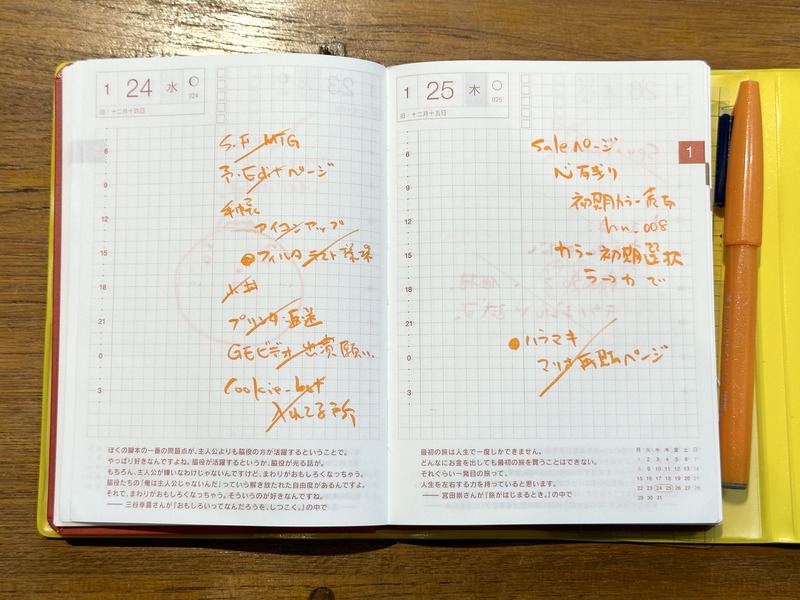 1 24 水
024
旧:十二月十四日
6
9
12
15
18
21
0
3
S.F MTG
予・Editページ
手帳
アイコンアップ
●フィルタ テスト
プリンタ返送
GEビデオ 出演願い
Cookie-bot
入れてる所
ぼくの脚本の一番の問題点が、主人公よりも脇役の方が活躍するということで。
やっぱり好きなんですよね。脇役が活躍するというか、脇役が光る話が。
もちろん、主人公が嫌いなわけじゃないんですけど。まわりがおもしろくなっちゃう。
脇役たちの「俺は主人公じゃないんだ」っていう解き放たれた自由度があるんですよ。
それで、まわりがおもしろくなっちゃう。そういうのが好きなんですね。
——三谷幸喜さんが『おもしろいってなんだろうを、しつこく。』の中で
1 25 木
025
旧:十二月十五日
1
6
9
12
15
18
21
0
3
saleページ
初期カラー表示
hn_008
カラー初期選択
●ハラマキ
マリオ再販ページ
最初の旅は人生で一度しかできません。
どんなにお金を出しても最初の旅を買うことはできない。
それぐらい一発目の旅って、
人生を左右する力を持っていると思います。
——宮田珠さんが『旅がはじまるとき。』の中で
月 火 水 木 金 土 日
1 2 3 4 5 6 7
8 9 10 11 12 13 14
15 16 17 18 19 20 21
22 23 24 25 26 27 28
29 30 31